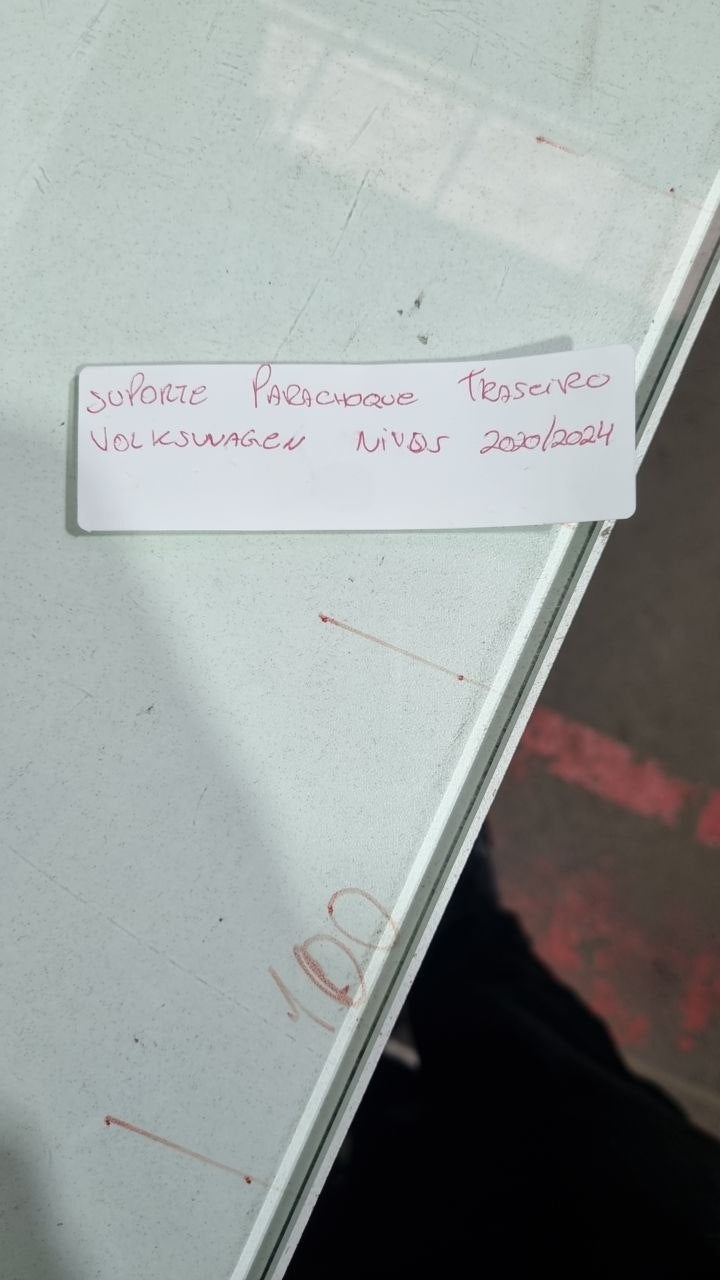 SUPORTE PARACHOQUE TRASEIRO
VOLKSWAGEN NIVOS 2020/2024
100